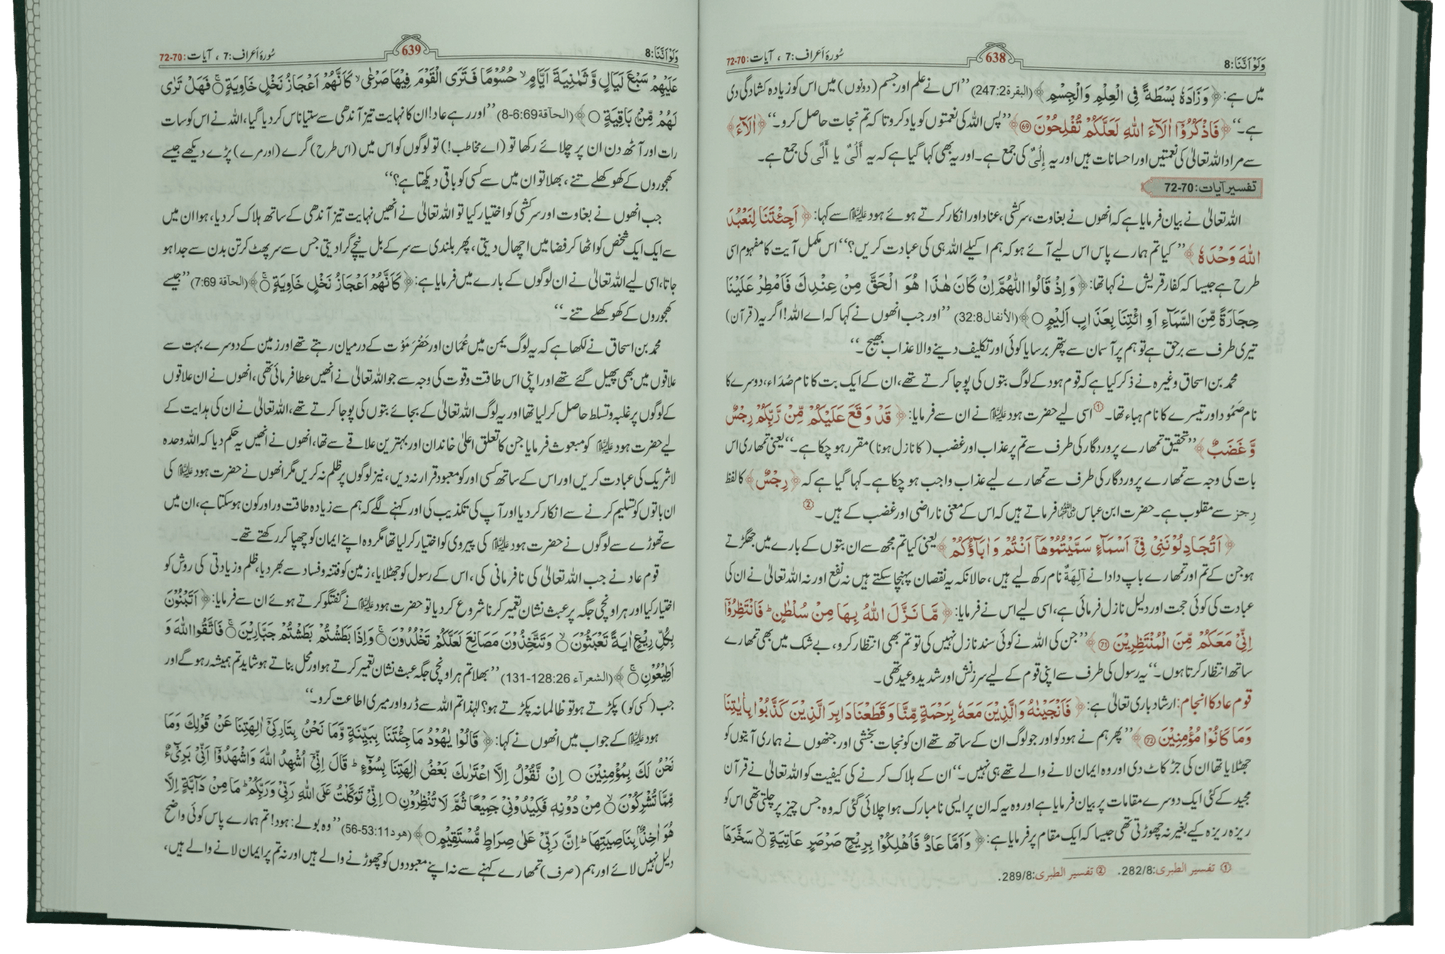 وَلَوْ اَنَّنَا: 8
638
سُورۂ اَعراف: 7 ، آیات: 70-72
میں ہے: ﴿ وَزَادَهٗ بَسْطَةً فِی الْعِلْمِ وَالْجِسْمِ ﴾ (البقرة 247:2) ’’اس نے علم اور جسم (دونوں) میں اس کو زیادہ کشادگی دی
ہے۔‘‘ ﴿ فَاذْكُرُوْۤا اٰلَآءَ اللّٰهِ لَعَلَّكُمْ تُفْلِحُوْنَ ﴾ ’’پس اللہ کی نعمتوں کو یاد کرو تاکہ تم نجات حاصل کرو۔‘‘ ﴿ اٰلَآءَ ﴾
سے مراد اللہ تعالیٰ کی نعمتیں اور احسانات ہیں اور یہ اِلًی کی جمع ہے۔ اور یہ بھی کہا گیا ہے کہ یہ اَلًی یا اُلًی کی جمع ہے۔
تفسیر آیات: 70-72
اللہ تعالیٰ نے بیان فرمایا ہے کہ انھوں نے بغاوت، سرکشی، عناد اور انکار کرتے ہوئے ہود علیہ السلام سے کہا: ﴿ اَجِئْتَنَا لِنَعْبُدَ
اللّٰهَ وَحْدَهٗ ﴾ ’’کیا تم ہمارے پاس اس لیے آئے ہو کہ ہم اکیلے اللہ ہی کی عبادت کریں؟‘‘ اس مکمل آیت کا مفہوم اسی
طرح ہے جیسا کہ کفار قریش نے کہا تھا: ﴿ وَ اِذْ قَالُوا اللّٰهُمَّ اِنْ كَانَ هٰذَا هُوَ الْحَقَّ مِنْ عِنْدِكَ فَاَمْطِرْ عَلَيْنَا
حِجَارَةً مِّنَ السَّمَآءِ اَوِ ائْتِنَا بِعَذَابٍ اَلِيْمٍ ﴾ (الأنفال 32:8) ’’اور جب انھوں نے کہا کہ اے اللہ! اگر یہ (قرآن)
تیری طرف سے برحق ہے تو ہم پر آسمان سے پتھر برسا یا کوئی اور تکلیف دینے والا عذاب بھیج۔‘‘
محمد بن اسحاق وغیرہ نے ذکر کیا ہے کہ قوم ہود کے لوگ بتوں کی پوجا کرتے تھے، ان کے ایک بت کا نام صُدَاء، دوسرے کا
نام صَمُود اور تیسرے کا نام ہباء تھا۔ ① اسی لیے حضرت ہود علیہ السلام نے ان سے فرمایا: ﴿ قَدْ وَقَعَ عَلَيْكُمْ مِّنْ رَّبِّكُمْ رِجْسٌ
وَّ غَضَبٌ ﴾ ’’تحقیق تمھارے پروردگار کی طرف سے تم پر عذاب اور غضب (کا نازل ہونا) مقرر ہو چکا ہے۔‘‘ یعنی تمھاری اس
بات کی وجہ سے تمھارے پروردگار کی طرف سے تمھارے لیے عذاب واجب ہو چکا ہے۔ کہا گیا ہے کہ ﴿ رِجْسٌ ﴾ کا لفظ
رِجز سے مقلوب ہے۔ حضرت ابن عباس رضی اللہ عنہما فرماتے ہیں کہ اس کے معنی ناراضی اور غضب کے ہیں۔ ②
﴿ اَتُجَادِلُوْنَنِیْ فِیْۤ اَسْمَآءٍ سَمَّيْتُمُوْهَاۤ اَنْتُمْ وَ اٰبَآؤُكُمْ ﴾ یعنی کیا تم مجھ سے ان بتوں کے بارے میں جھگڑتے
ہو جن کے تم اور تمھارے باپ دادا نے آلِهَةٌ نام رکھ لیے ہیں، حالانکہ یہ نقصان پہنچا سکتے ہیں نہ نفع اور نہ اللہ تعالیٰ نے ان کی
عبادت کی کوئی حجت اور دلیل نازل فرمائی ہے، اسی لیے اس نے فرمایا: ﴿ مَّا نَزَّلَ اللّٰهُ بِهَا مِنْ سُلْطٰنٍ ؕ فَانْتَظِرُوْۤا
اِنِّیْ مَعَكُمْ مِّنَ الْمُنْتَظِرِيْنَ ﴾ ’’جن کی اللہ نے کوئی سند نازل نہیں کی تو تم بھی انتظار کرو، بے شک میں بھی تمھارے
ساتھ انتظار کرتا ہوں۔‘‘ یہ رسول کی طرف سے اپنی قوم کے لیے سرزنش اور شدید وعید تھی۔
قوم عاد کا انجام: ارشاد باری تعالیٰ ہے: ﴿ فَاَنْجَيْنٰهُ وَالَّذِيْنَ مَعَهٗ بِرَحْمَةٍ مِّنَّا وَقَطَعْنَا دَابِرَ الَّذِيْنَ كَذَّبُوْا بِاٰيٰتِنَا
وَمَا كَانُوْا مُؤْمِنِيْنَ ﴾ ’’پھر ہم نے ہود کو اور جو لوگ ان کے ساتھ تھے ان کو نجات بخشی اور جنھوں نے ہماری آیتوں کو
جھٹلایا تھا ان کی جڑ کاٹ دی اور وہ ایمان لانے والے تھے ہی نہیں۔‘‘ ان کے ہلاک کرنے کی کیفیت کو اللہ تعالیٰ نے قرآن
مجید کے کئی ایک دوسرے مقامات پر بیان فرمایا ہے اور وہ یہ کہ ان پر ایسی نامبارک ہوا چلائی گئی کہ وہ جس چیز پر چلتی تھی اس کو
ریزہ ریزہ کیے بغیر نہ چھوڑتی تھی جیسا کہ ایک مقام پر فرمایا ہے: ﴿ وَ اَمَّا عَادٌ فَاُهْلِكُوْا بِرِيْحٍ صَرْصَرٍ عَاتِيَةٍ ۙ سَخَّرَهَا
① تفسير الطبري: 282/8. ② تفسير الطبري: 289/8.
وَلَوْ اَنَّنَا: 8
639
سُورۂ اَعراف: 7 ، آیات: 70-72
عَلَيْهِمْ سَبْعَ لَيَالٍ وَّ ثَمٰنِيَةَ اَيَّامٍ ۙ حُسُوْمًا فَتَرَى الْقَوْمَ فِيْهَا صَرْعٰى ۙ كَاَنَّهُمْ اَعْجَازُ نَخْلٍ خَاوِيَةٍ ۚ فَهَلْ تَرٰى
لَهُمْ مِّنْ بَاقِيَةٍ ﴾ (الحاقة 6:69-8) ’’اور رہے عاد! ان کا نہایت تیز آندھی سے ستیاناس کر دیا گیا، اللہ نے اس کو سات
رات اور آٹھ دن ان پر چلائے رکھا تو (اے مخاطب!) تو لوگوں کو اس میں (اس طرح) گرے (اور مرے) پڑے دیکھے جیسے
کھجوروں کے کھوکھلے تنے، بھلا تو ان میں سے کسی کو باقی دیکھتا ہے؟‘‘
جب انھوں نے بغاوت اور سرکشی کو اختیار کیا تو اللہ تعالیٰ نے انھیں نہایت تیز آندھی کے ساتھ ہلاک کر دیا، ہوا ان میں
سے ایک ایک شخص کو اٹھا کر فضا میں اچھال دیتی، پھر بلندی سے سر کے بل نیچے گرا دیتی جس سے سر پھٹ کر تن بدن سے جدا ہو
جاتا، اسی لیے اللہ تعالیٰ نے ان لوگوں کے بارے میں فرمایا ہے: ﴿ كَاَنَّهُمْ اَعْجَازُ نَخْلٍ خَاوِيَةٍ ﴾ (الحاقة 7:69) ’’جیسے
کھجوروں کے کھوکھلے تنے۔‘‘
محمد بن اسحاق نے لکھا ہے کہ یہ لوگ یمن میں عُمان اور حَضْرَ مَوْت کے درمیان رہتے تھے اور زمین کے دوسرے بہت سے
علاقوں میں بھی پھیل گئے تھے اور اپنی اس طاقت و قوت کی وجہ سے جو اللہ تعالیٰ نے انھیں عطا فرمائی تھی، انھوں نے ان علاقوں
کے لوگوں پر غلبہ و تسلط حاصل کر لیا تھا اور یہ لوگ اللہ تعالیٰ کے بجائے بتوں کی پوجا کرتے تھے، اللہ تعالیٰ نے ان کی ہدایت کے
لیے حضرت ہود علیہ السلام کو مبعوث فرمایا جن کا تعلق اعلیٰ خاندان اور بہترین علاقے سے تھا، انھوں نے انھیں یہ حکم دیا کہ اللہ وحدہ
لاشریک کی عبادت کریں اور اس کے ساتھ کسی اور کو معبود قرار نہ دیں، نیز لوگوں پر ظلم نہ کریں مگر انھوں نے حضرت ہود علیہ السلام کی
ان باتوں کو تسلیم کرنے سے انکار کر دیا اور آپ کی تکذیب کی اور کہنے لگے کہ ہم سے زیادہ طاقت ور اور کون ہو سکتا ہے، ان میں
سے تھوڑے سے لوگوں نے حضرت ہود علیہ السلام کی پیروی کو اختیار کر لیا تھا مگر وہ اپنے ایمان کو چھپا کر رکھتے تھے۔
قوم عاد نے جب اللہ تعالیٰ کی نافرمانی کی، اس کے رسول کو جھٹلایا، زمین کو فتنہ و فساد سے بھر دیا، ظلم و زیادتی کی روش کو
اختیار کیا اور ہر اونچی جگہ پر عبث نشان تعمیر کرنا شروع کر دیا تو حضرت ہود علیہ السلام نے گفتگو کرتے ہوئے ان سے فرمایا: ﴿ اَتَبْنُوْنَ
بِكُلِّ رِيْعٍ اٰيَةً تَعْبَثُوْنَ ۙ وَتَتَّخِذُوْنَ مَصَانِعَ لَعَلَّكُمْ تَخْلُدُوْنَ ۚ وَاِذَا بَطَشْتُمْ بَطَشْتُمْ جَبَّارِيْنَ ۚ فَاتَّقُوا اللّٰهَ وَ
اَطِيْعُوْنِ ﴾ (الشعرآء 128:26-131) ’’بھلا تم ہر اونچی جگہ عبث نشان تعمیر کرتے ہو اور محل بناتے ہو شاید تم ہمیشہ رہو گے اور
جب (کسی کو) پکڑتے ہو تو ظالمانہ پکڑتے ہو؟ لہٰذا تم اللہ سے ڈرو اور میری اطاعت کرو۔‘‘
ہود علیہ السلام کے جواب میں انھوں نے کہا: ﴿ قَالُوْا يٰهُوْدُ مَا جِئْتَنَا بِبَيِّنَةٍ وَّمَا نَحْنُ بِتَارِكِیْۤ اٰلِهَتِنَا عَنْ قَوْلِكَ وَمَا
نَحْنُ لَكَ بِمُؤْمِنِيْنَ ۝ اِنْ نَّقُوْلُ اِلَّا اعْتَرٰىكَ بَعْضُ اٰلِهَتِنَا بِسُوْٓءٍ ؕ قَالَ اِنِّیْۤ اُشْهِدُ اللّٰهَ وَاشْهَدُوْۤا اَنِّیْ بَرِیْٓءٌ
مِّمَّا تُشْرِكُوْنَ ۙ مِنْ دُوْنِهٖ فَكِيْدُوْنِیْ جَمِيْعًا ثُمَّ لَا تُنْظِرُوْنِ ۝ اِنِّیْ تَوَكَّلْتُ عَلَى اللّٰهِ رَبِّیْ وَرَبِّكُمْ ؕ مَا مِنْ دَآبَّةٍ اِلَّا
هُوَ اٰخِذٌۢ بِنَاصِيَتِهَا ؕ اِنَّ رَبِّیْ عَلٰى صِرَاطٍ مُّسْتَقِيْمٍ ﴾ (هود 53:11-56) ’’وہ بولے: ہود! تم ہمارے پاس کوئی واضح
دلیل نہیں لائے اور ہم (صرف) تمھارے کہنے سے نہ اپنے معبودوں کو چھوڑنے والے ہیں اور نہ تم پر ایمان لانے والے ہیں،